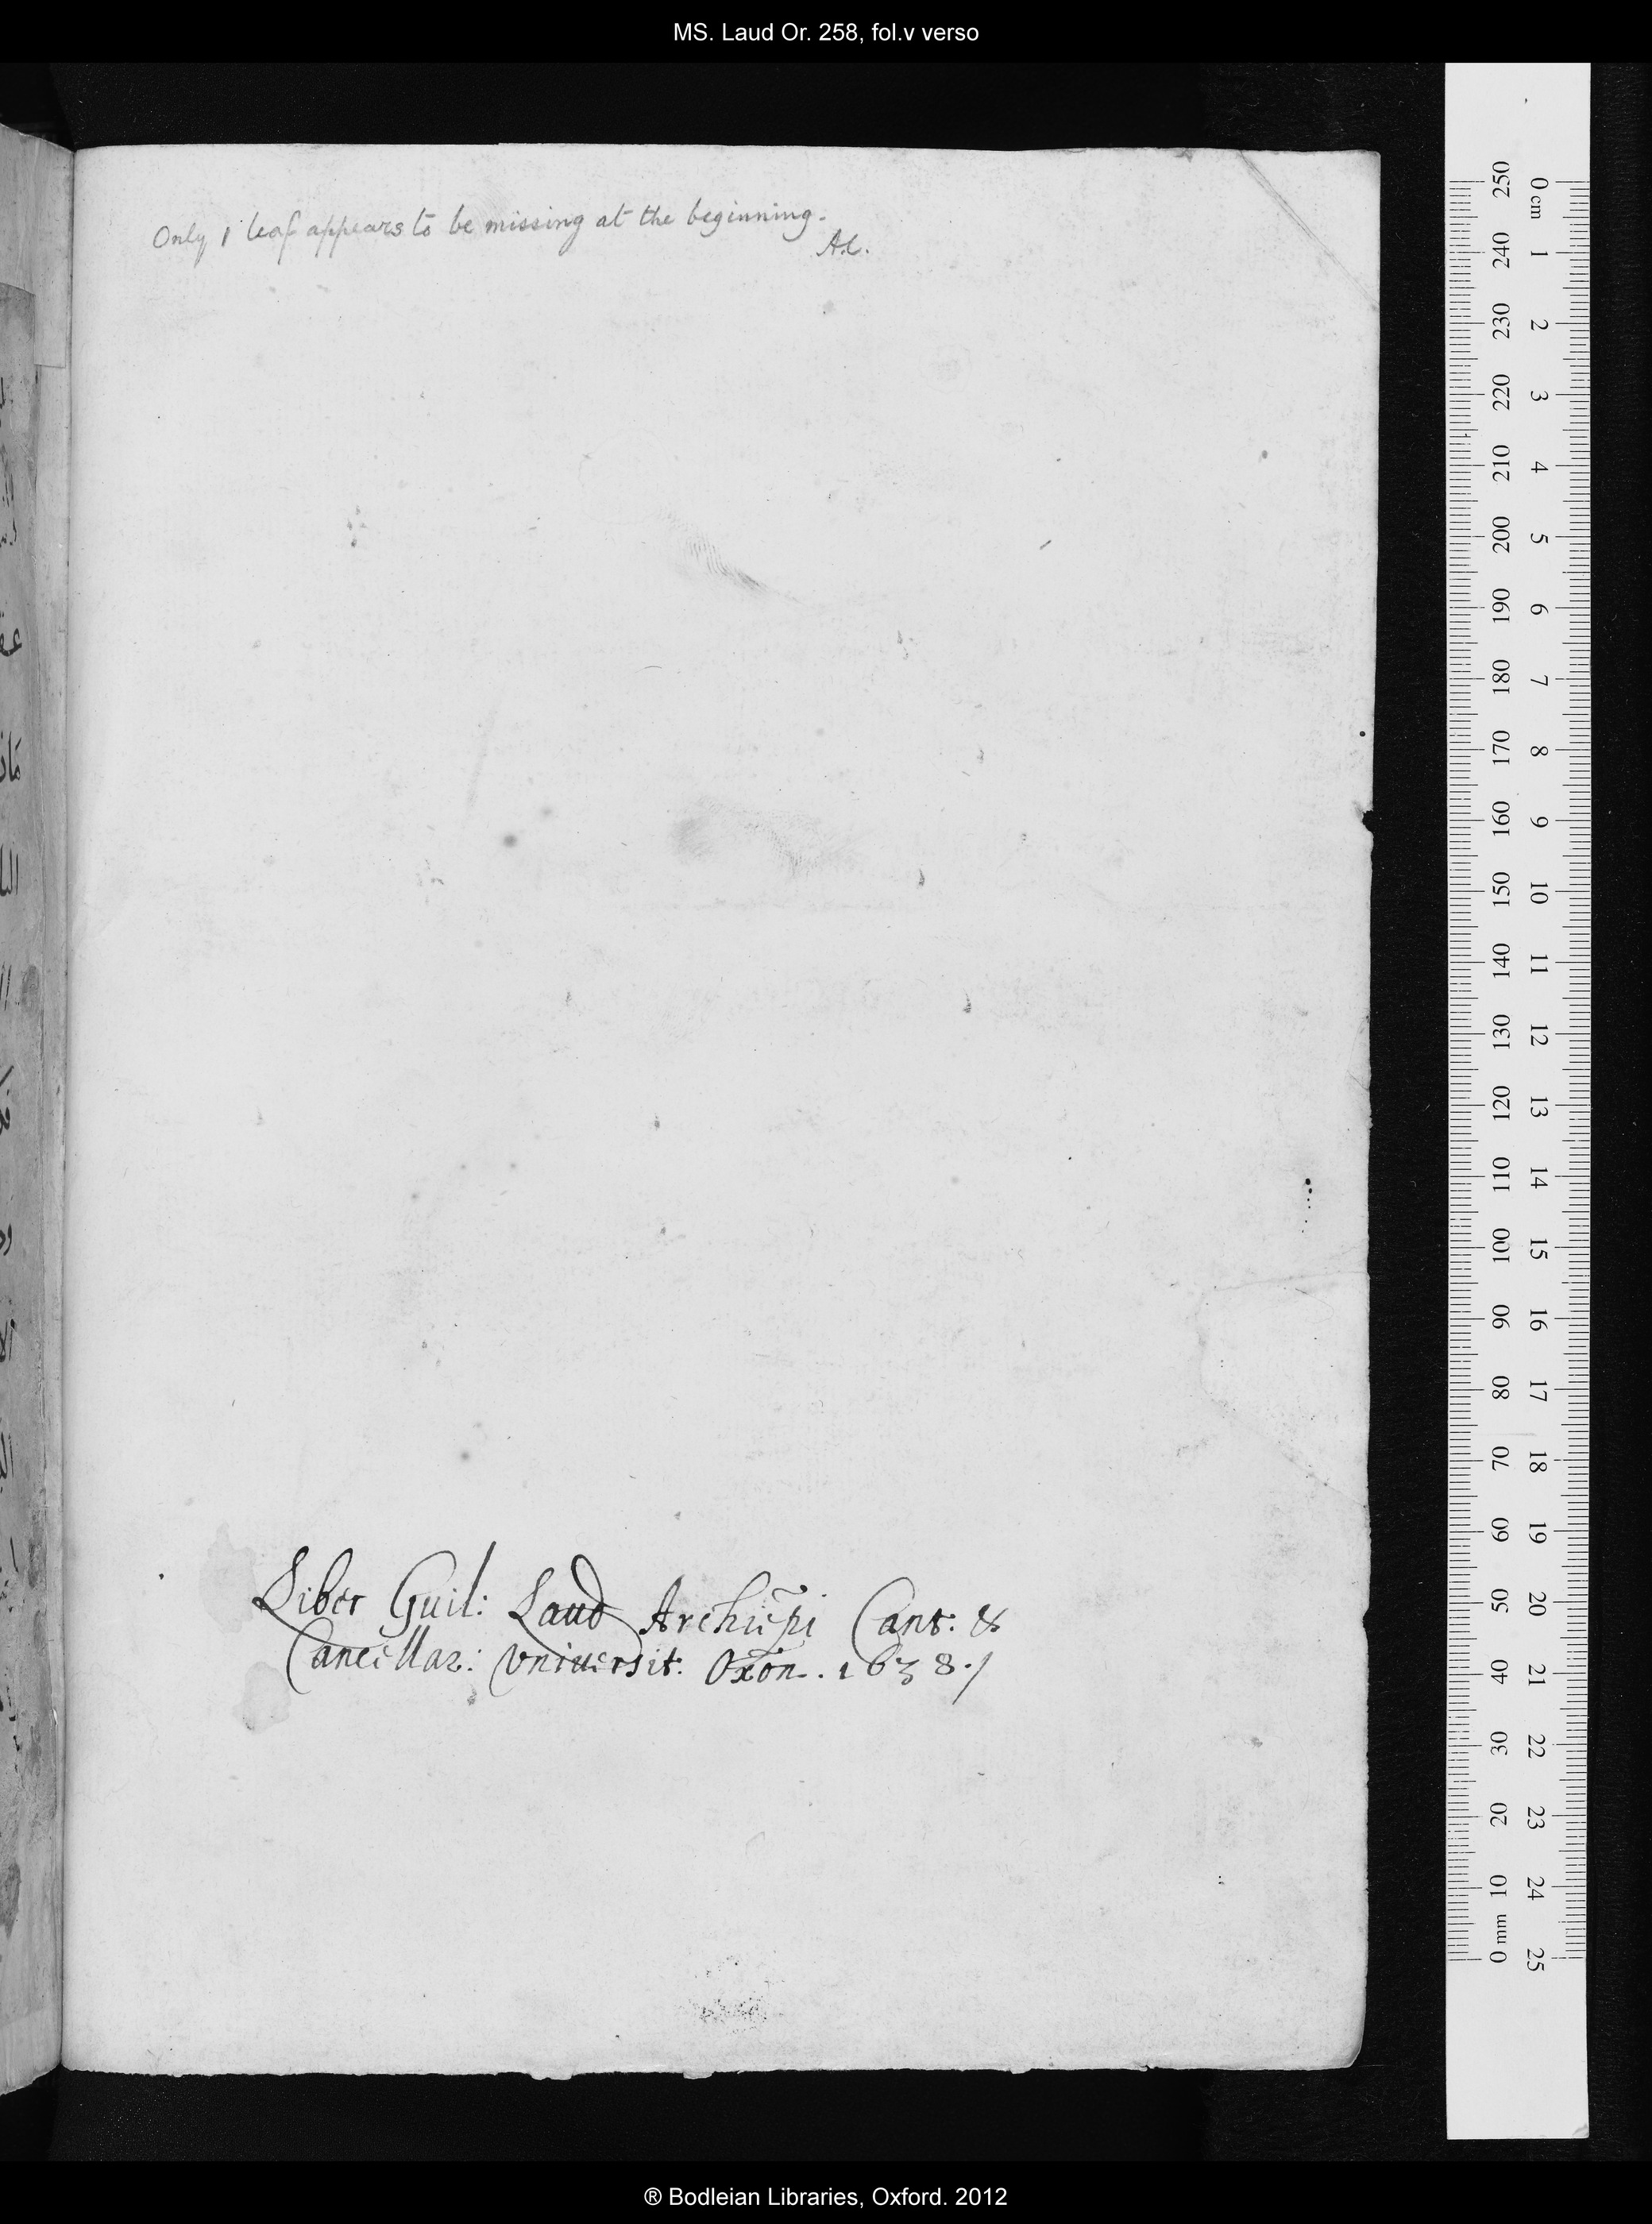 MS. Laud Or. 258, fol.v verso
Only 1 leaf appears to be missing at the beginning.
Liber Guil: Laud Archiēpi Cant: &
Cancellar: Vniuersit: Oxōn. 1638./
0 cm 1 2 3 4 5 6 7 8 9 10 11 12 13 14 15 16 17 18 19 20 21 22 23 24 25
250 240 230 220 210 200 190 180 170 160 150 140 130 120 110 100 90 80 70 60 50 40 30 20 10 0 mm
® Bodleian Libraries, Oxford. 2012